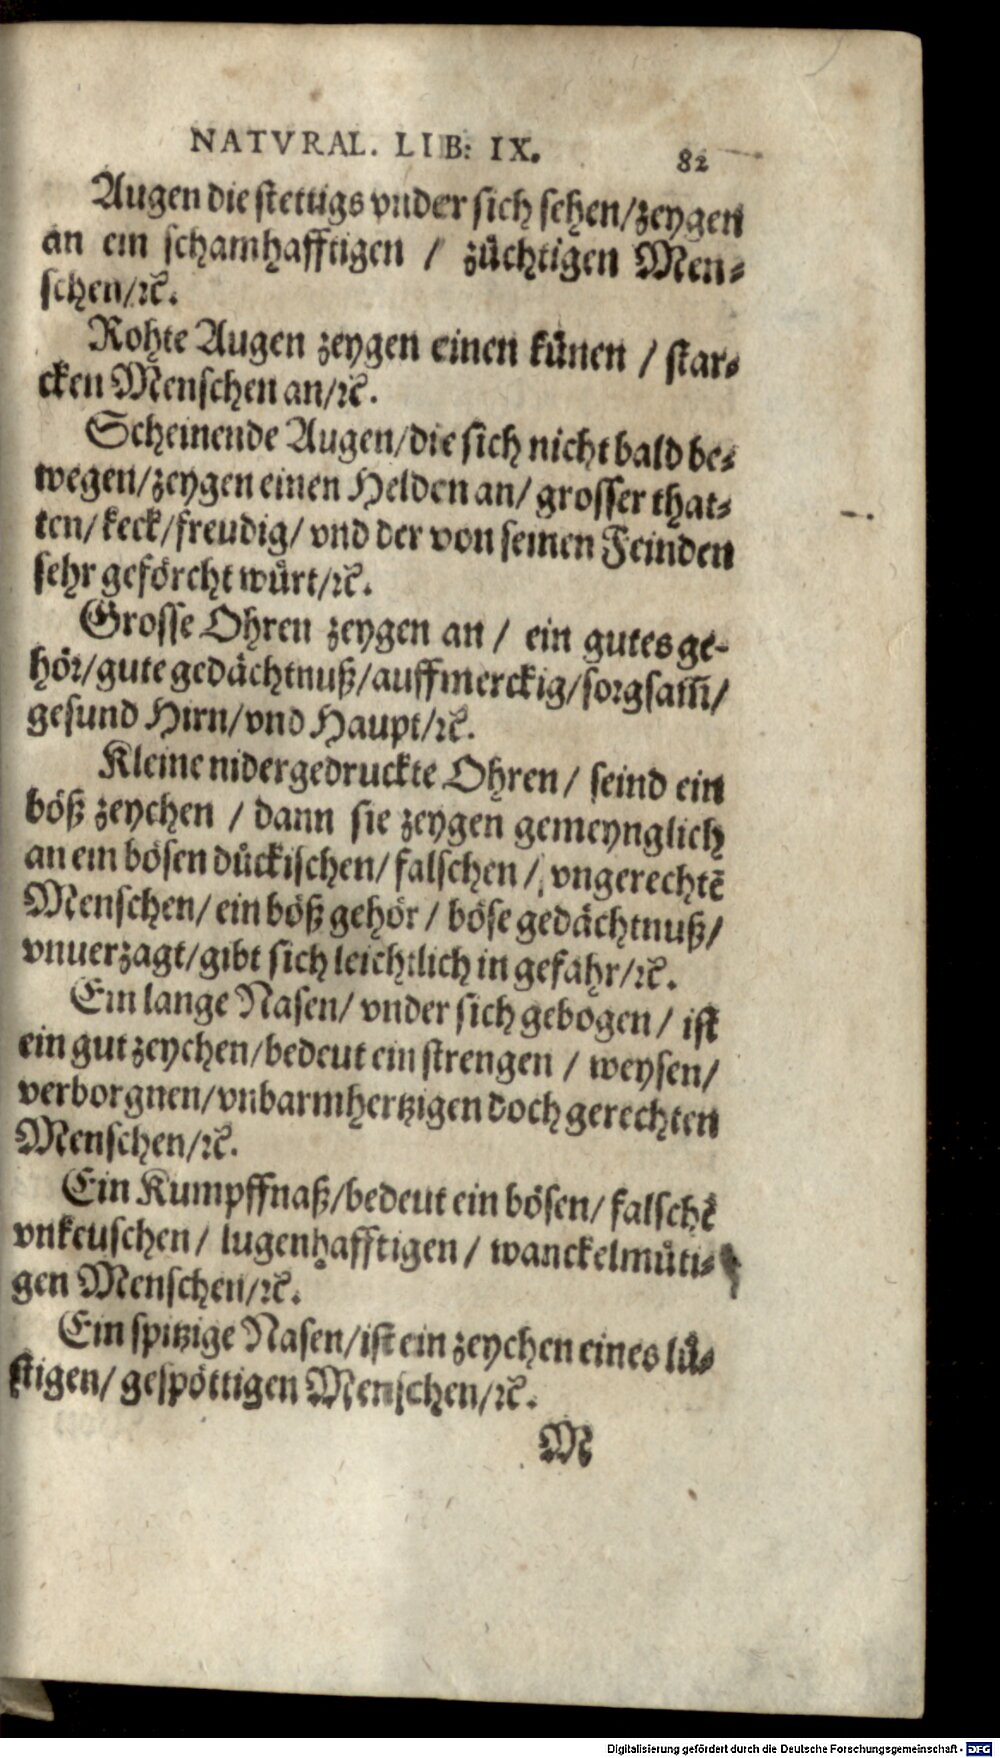 NATVRAL. LIB: IX. 82
Augen die stettigs vnder sich sehen/zeygen
an ein schamhafftigen / zůchtigen Men⸗
schen/ꝛc̃.
Rohte Augen zeygen einen kůnen / star⸗
cken Menschen an/ꝛc̃.
Scheinende Augen/die sich nicht bald be⸗
wegen/zeygen einen Helden an/ grosser that⸗
ten/ keck/freudig/ vnd der von seinen Feinden
sehr geförcht wůrt/ꝛc̃.
Grosse Ohren zeygen an / ein gutes ge⸗
hör/gute gedächtnuß/auffmerckig/sorgsam̃/
gesund Hirn/vnd Haupt/ꝛc̃.
Kleine nidergedruckte Ohren / seind ein
böß zeychen / dann sie zeygen gemeynglich
an ein bösen důckischen/ falschen / vngerechtẽ
Menschen/ ein böß gehör / böse gedächtnuß/
vnuerzagt/gibt sich leichtlich in gefahr/ꝛc̃.
Ein lange Nasen/ vnder sich gebogen / ist
ein gut zeychen/bedeut ein strengen / weysen/
verborgnen/vnbarmhertzigen doch gerechten
Menschen/ꝛc̃.
Ein Kumpffnaß/bedeut ein bösen/ falschẽ
vnkeuschen/ lugenhafftigen / wanckelmůti⸗
gen Menschen/ꝛc̃.
Ein spitzige Nasen/ist ein zeychen eines lů⸗
stigen/ gespöttigen Menschen/ꝛc̃.
M
Digitalisierung gefördert durch die Deutsche Forschungsgemeinschaft - DFG